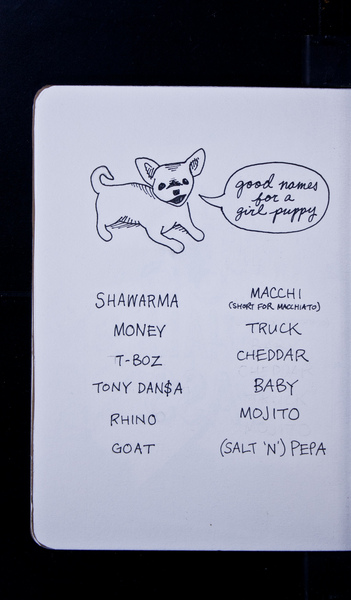 good names
for a
girl puppy
SHAWARMA
MONEY
T-BOZ
TONY DAN$A
RHINO
GOAT
MACCHI
(SHORT FOR MACCHIATO)
TRUCK
CHEDDAR
BABY
MOJITO
(SALT 'N') PEPA